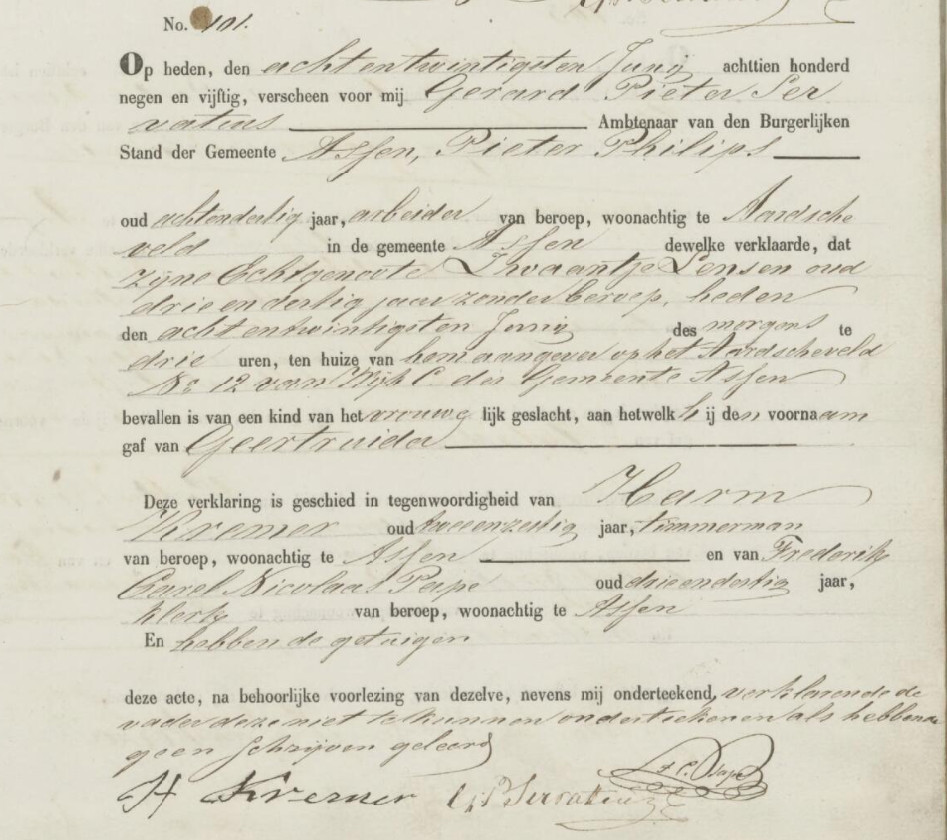 No. 101.
Op heden, den achtentwintigsten Junij achttien honderd
negen en vijftig, verscheen voor mij Gerard Pieter Ser
vatius Ambtenaar van den Burgerlijken
Stand der Gemeente Assen, Pieter Philips
oud achtendertig jaar, arbeider van beroep, woonachtig te Aardsche
veld in de gemeente Assen dewelke verklaarde, dat
zijne Echtgenoote Zwaantje Sensen oud
drieendertig jaar zonder beroep, heden
den achtentwintigsten Junij des morgens te
drie uren, ten huize van hem aangever op het Aardscheveld
No 12 van Wijk C der Gemeente Assen
bevallen is van een kind van het vrouwe lijk geslacht, aan hetwelk h ij den voornaam
gaf van Geertruida
Deze verklaring is geschied in tegenwoordigheid van Harm
Kremer oud tweeenzestig jaar, timmerman
van beroep, woonachtig te Assen en van Frederik
Carel Nicolaas Pape oud drieendertig jaar,
klerk van beroep, woonachtig te Assen
En hebben de getuigen
deze acte, na behoorlijke voorlezing van dezelve, nevens mij onderteekend, verklarende de
vader deze niet te kunnen onderteekenen als hebbende
geen schrijven geleerd
H Kremer GPServatius F C Pape